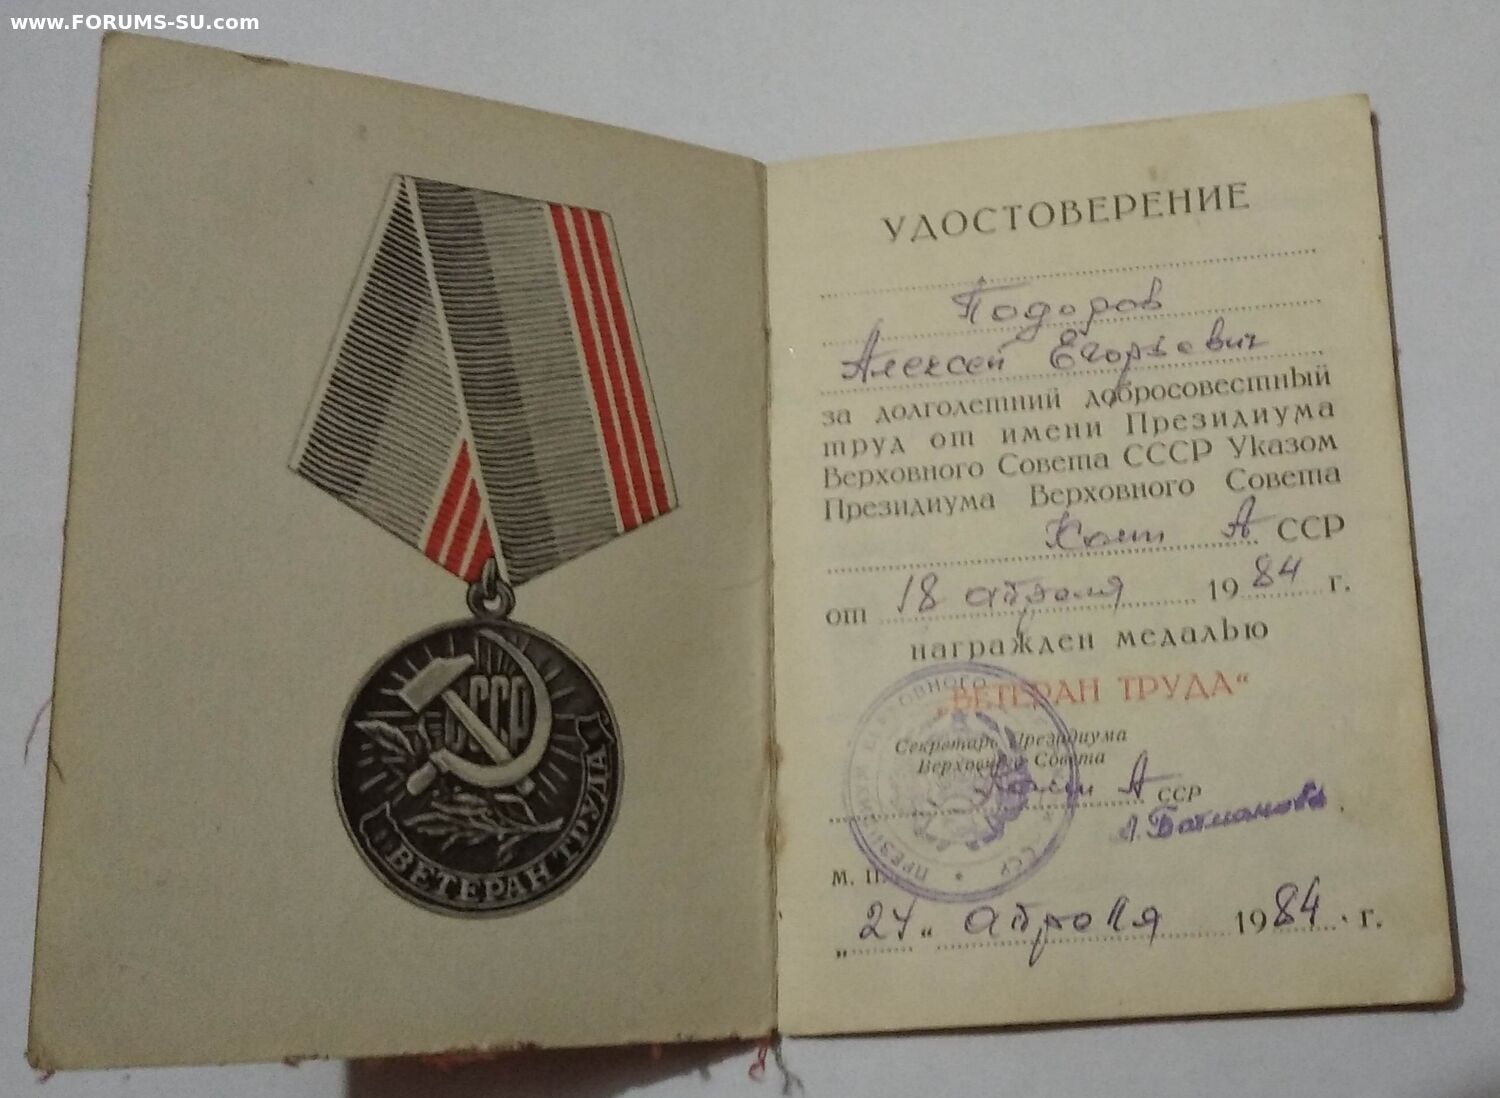 www.FORUMS-SU.com
СССР
ВЕТЕРАН ТРУДА
УДОСТОВЕРЕНИЕ
Подоров
Алексей Егорьевич
за долголетний добросовестный
труд от имени Президиума
Верховного Совета СССР Указом
Президиума Верховного Совета
Коми А ССР
от 18 апреля 1984 г.
награжден медалью
„ВЕТЕРАН ТРУДА“
Секретарь Президиума
Верховного Совета
Коми А ССР
А. Батманова
М. П.
„24“ апреля 1984 г.